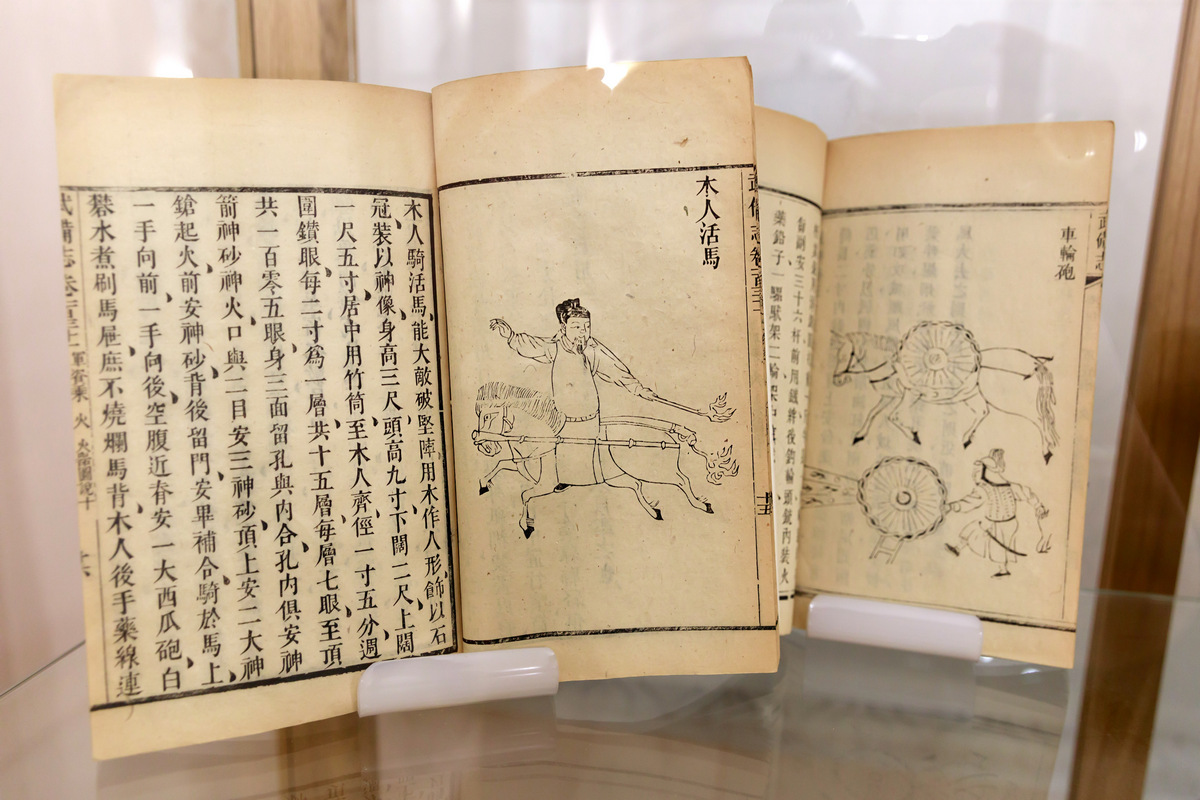 木人活馬
木人騎活馬、能大敵破堅陣用木作人形、飾以石
冠、裝以神像身高三尺、頭高九寸下闊二尺上闊
一尺五寸居中用竹筒、至木人齊俓一寸五分週
圍鑽眼、每二寸爲一層、共十五層、每層七眼、至頂
共一百零五眼、身三面留孔、與內合孔內俱安神
箭神砂神火口與二目安三神砂、頂上安二大神
鎗起火、前安神砂、背後留門、安畢補合、騎於馬上、
一手向前、一手向後、空腹近脊安一大西瓜砲、白
礬水煮刷馬屉庶不燒爛馬背、木人後手藥線連
武備志卷 軍資乘 火 火器圖說十
車輪砲
武備志
安三十六杆前用
藥鉛子、一騾駄架二輪架中